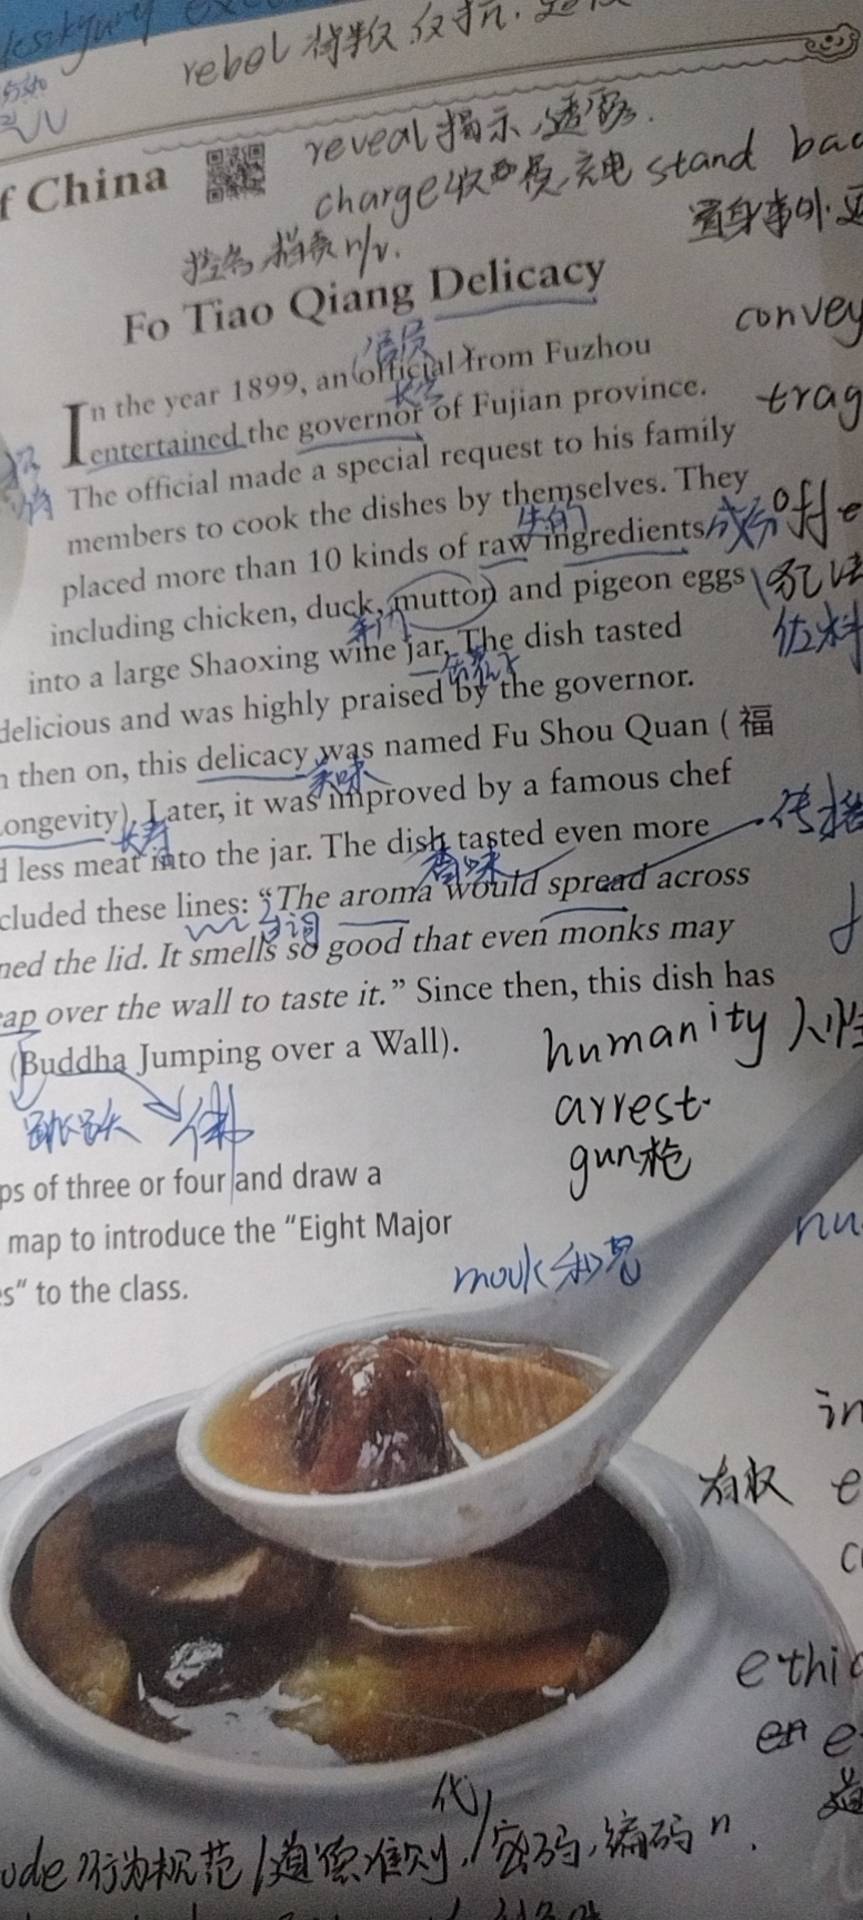 rebel
reveal 揭示,透露.
f China
charge 收费,充电 stand bac
置身事外
控告,指责 n/v.
Fo Tiao Qiang Delicacy
convey
官员
In the year 1899, an official from Fuzhou
长官
entertained the governor of Fujian province.
trag
The official made a special request to his family
members to cook the dishes by themselves. They
生的
placed more than 10 kinds of raw ingredients
成分
including chicken, duck, mutton and pigeon eggs
羊肉
佐料
into a large Shaoxing wine jar. The dish tasted
delicious and was highly praised by the governor.
n then on, this delicacy was named Fu Shou Quan (福
美味
ongevity). Later, it was improved by a famous chef
长寿
传播
d less meat into the jar. The dish tasted even more
香味
cluded these lines: “The aroma would spread across
台词
ned the lid. It smells so good that even monks may
eap over the wall to taste it.” Since then, this dish has
humanity 人性
(Buddha Jumping over a Wall).
arrest.
跳跃 佛
gun枪
ps of three or four and draw a
map to introduce the “Eight Major
nu
s” to the class.
monk 和尚
in
有权 e
c
ethic
en e
代
ode 行为规范/道德准则,/密码,编码 n.